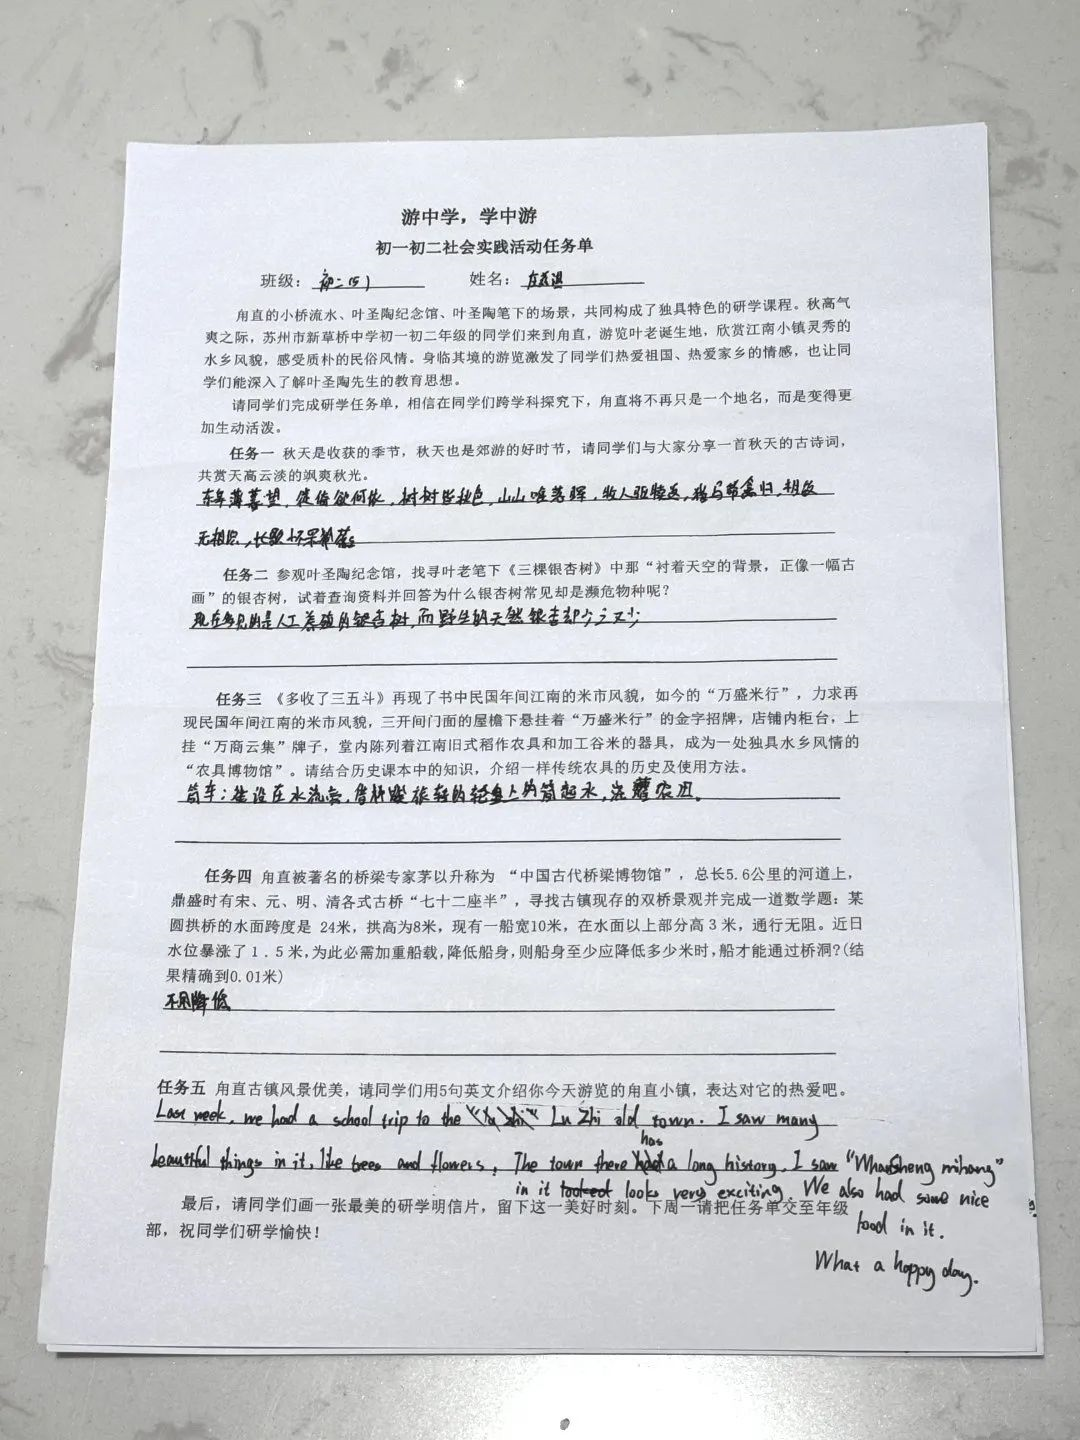 游中学，学中游
初一初二社会实践活动任务单
班级：初二(5) 姓名：
甪直的小桥流水、叶圣陶纪念馆、叶圣陶笔下的场景，共同构成了独具特色的研学课程。秋高气
爽之际，苏州市新草桥中学初一初二年级的同学们来到甪直，游览叶老诞生地，欣赏江南小镇灵秀的
水乡风貌，感受质朴的民俗风情。身临其境的游览激发了同学们热爱祖国、热爱家乡的情感，也让同
学们能深入了解叶圣陶先生的教育思想。
请同学们完成研学任务单，相信在同学们跨学科探究下，甪直将不再只是一个地名，而是变得更
加生动活泼。
任务一 秋天是收获的季节，秋天也是郊游的好时节，请同学们与大家分享一首秋天的古诗词，
共赏天高云淡的飒爽秋光。
东皋薄暮望，徙倚欲何依，树树皆秋色，山山唯落晖，牧人驱犊返，猎马带禽归，相顾
无相识，长歌怀采薇。
任务二 参观叶圣陶纪念馆，找寻叶老笔下《三棵银杏树》中那“衬着天空的背景，正像一幅古
画”的银杏树，试着查询资料并回答为什么银杏树常见却是濒危物种呢？
现在多见的是人工养殖的银杏树，而野生的天然银杏却少之又少
任务三 《多收了三五斗》再现了书中民国年间江南的米市风貌，如今的“万盛米行”，力求再
现民国年间江南的米市风貌，三开间门面的屋檐下悬挂着“万盛米行”的金字招牌，店铺内柜台，上
挂“万商云集”牌子，堂内陈列着江南旧式稻作农具和加工谷米的器具，成为一处独具水乡风情的
“农具博物馆”。请结合历史课本中的知识，介绍一样传统农具的历史及使用方法。
筒车：建设在水流旁，旋转的轮盘上的筒起水，农田。
任务四 甪直被著名的桥梁专家茅以升称为 “中国古代桥梁博物馆”，总长5.6公里的河道上，
鼎盛时有宋、元、明、清各式古桥“七十二座半”，寻找古镇现存的双桥景观并完成一道数学题：某
圆拱桥的水面跨度是 24米，拱高为8米，现有一船宽10米，在水面以上部分高 3 米，通行无阻。近日
水位暴涨了1．5 米，为此必需加重船载，降低船身，则船身至少应降低多少米时，船才能通过桥洞？(结
果精确到0.01米)
不用降低
任务五 甪直古镇风景优美，请同学们用5句英文介绍你今天游览的甪直小镇，表达对它的热爱吧。
Last week, we had a school trip to the Lu Zhi old town. I saw many
beautiful things in it, like trees and flowers. The town there has a long history. I saw "WhanSheng mihang"
in it looked looks very exciting. We also had some nice
food in it.
What a happy day.
最后，请同学们画一张最美的研学明信片，留下这一美好时刻。下周一请把任务单交至年级
部，祝同学们研学愉快！